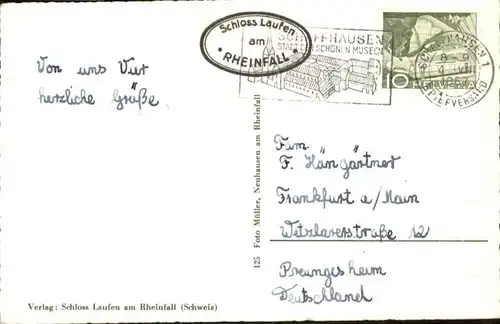 Schloss Laufen
am
RHEINFALL
SCHAFFHAUSEN
STADT DES SCHÖNEN MUSEUMS
SCHAFFHAUSEN 1
8 - 9
BRIEFVERSAND
10
Von uns Vier
herzliche Grüße.
Fam.
F. Hängärtner
Frankfurt a/Main
Wetzlarerstraße 12
Preungesheim
Deutschland
125 Foto Müller, Neuhausen am Rheinfall
Verlag: Schloss Laufen am Rheinfall (Schweiz)